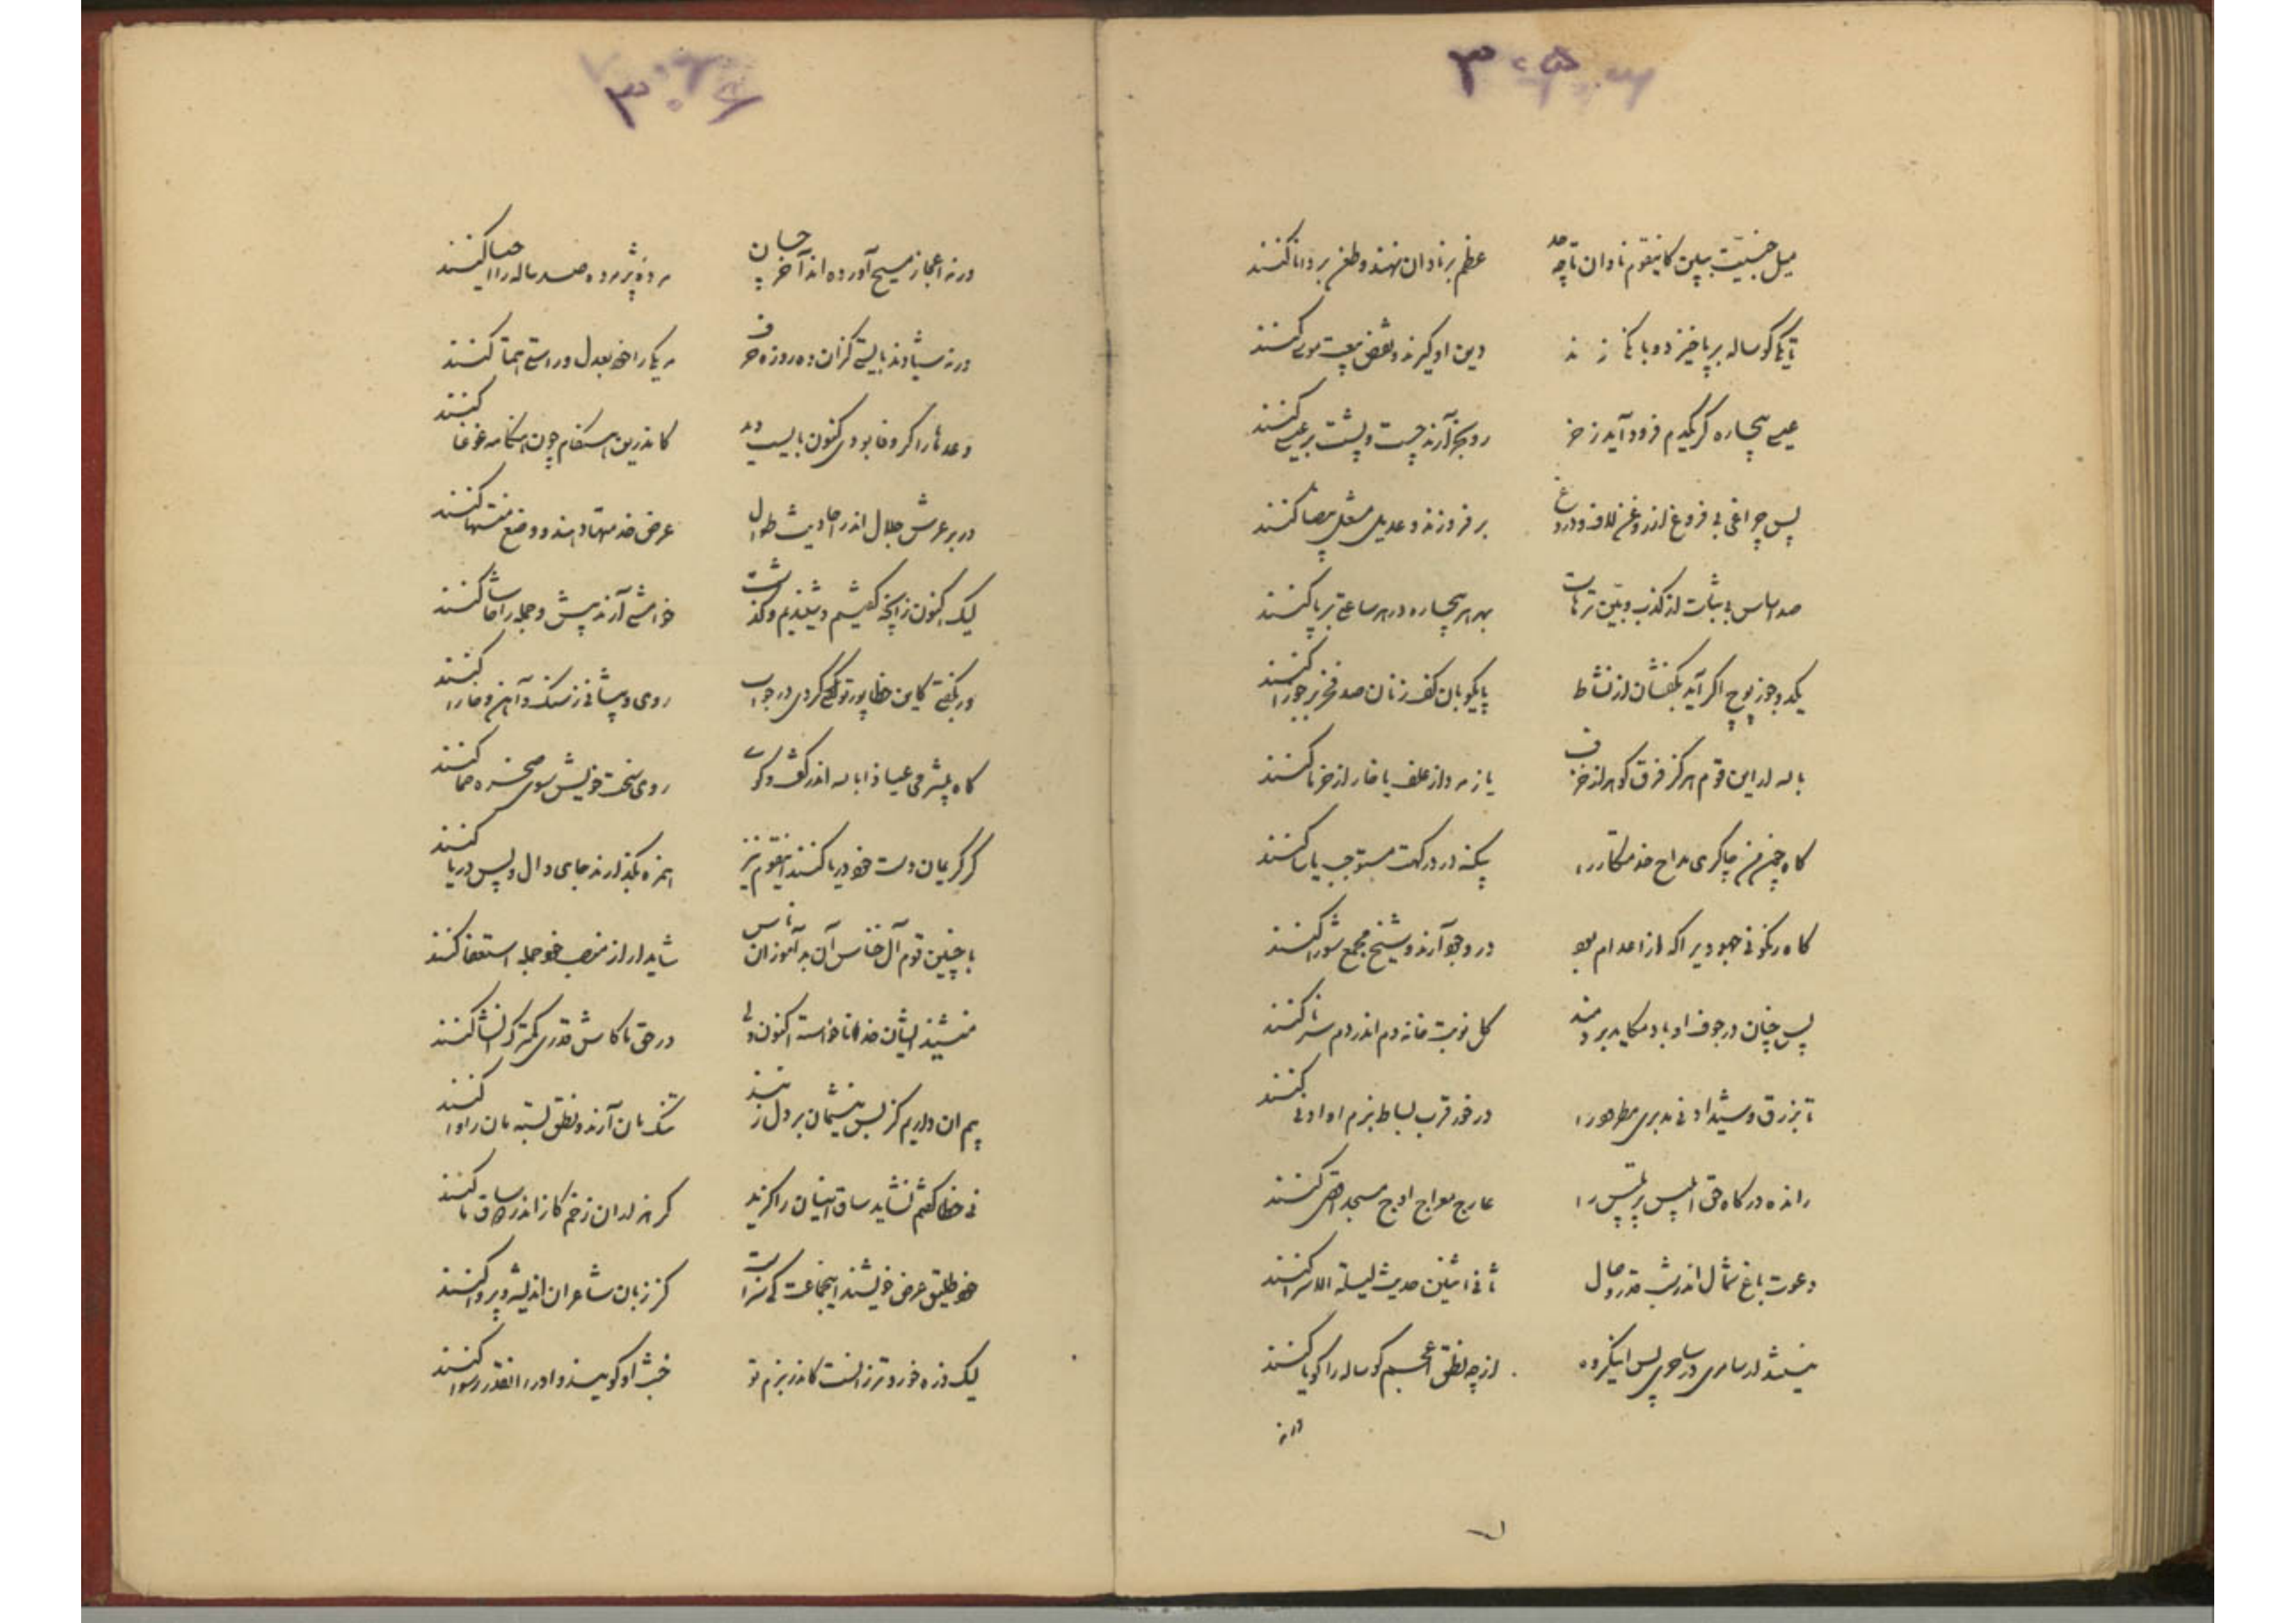 ۳۰۵
میل جنسیت ببین کاینقوم نادان تا چه حد
عظم بر نادان نهند و طعن بر دانا کنند
تا یکی گوساله برپا خیزد و بانگی زند
دین او گیرند و نقض بیعت موسی کنند
عیسی بیچاره گر یکدم فرود آید ز خر
رو بخر آرند چست و پشت بر عیسی کنند
پس چراغی بی فروغ از روغن لاف و دروغ
بر فروزند و عدیل مشعل بیضا کنند
صد اساس بی ثبات از کذب و بین ترهات
بهر هر بیچاره در هر ساعتی برپا کنند
یکدو جوز پوچ اگر آید بکفشان از نشاط
پایکوبان کف زنان صد فخر بر جوزا کنند
بالله ار این قوم هرگز فرق گوهر از خزف
یا زمرد از علف یا خار از خرما کنند
گاه چون من چاکری مداح خدمتکار را
بیگنه در درگهت مستوجب یاسا کنند
گاه رنگونی جهود پر اکه از اعدام بود
در وجود آرند و شیخ مجمع شورا کنند
پس چنان در جوف او باد مکاید بردمند
کل نوبت خانه دم اندر دم سرنا کنند
تا بزرق و شید ادنی مدبری مطرود را
در خور قرب بساط بزم او ادنی کنند
رانده درگاه حق ابلیس پر تلبیس را
عارج معراج اوج مسجد اقصی کنند
دعوت باغ شمال اندر شب قدر وصال
ثانی اثنین حدیث لیلة الاسرا کنند
نیستند ار سامری در ساحری پس اینگروه
از چه نطق عجل جسم گوساله را گویا کنند
ورنه
۳۰۶
ورنه اعجاز مسیح آورده اند آخر چسان
مرده پژمرده صد ساله را احیا کنند
ورنه شیادند بایستی کزان ده روزه حرف
مر یکی را خود بعدل و راستی همتا کنند
وعدها را گر وفا بودی کنون بایست دید
کاندرین هنگام چون هنگامه غوغا کنند
در بر عرش جلال اندر احادیث طوال
عرض خدمتها دهند و وضع منتها کنند
لیک کنون زانچه گفتیم و شنیدیم و گذشت
خواهشی آرند پیش و جمله را حاشا کنند
ور بگفتی کاین خطا پور تو کی کردی در جواب
روی و پیشانی ز سنگ و آهن و خارا کنند
گاه بیشرمی عیاذا بالله اندر گفتگوی
روی سخت خویش سوی صخره صما کنند
گر کریمان دست خود دریا کنند اینقوم نیز
همزه بگذارند جای دال و پس دریا کنند
با چنین قوم آل خناس آن بدآموزان ناس
شاید ار از منصب خود جمله استعفا کنند
منشیند ایشان خدا ناخواسته اکنون ولی
در حق ما کاش قدری کمترک انشا کنند
بیم ان داریم کز بس نیشمان بر دل زنند
تنگ مان آرند و نطق بسته مان را وا کنند
نی خطا گفتم نشاید ساق اینان را گزید
گر هزاران زخم گاز اندر ساق ما کنند
خود طلیق عرض خویشند اینجماعت کی سزاست
کز زبان شاعران اندیشه و پروا کنند
لیک دزه خورد و ترزانست کاندر بزم تو
خبث او گویند و او را اینقدر رسوا کنند